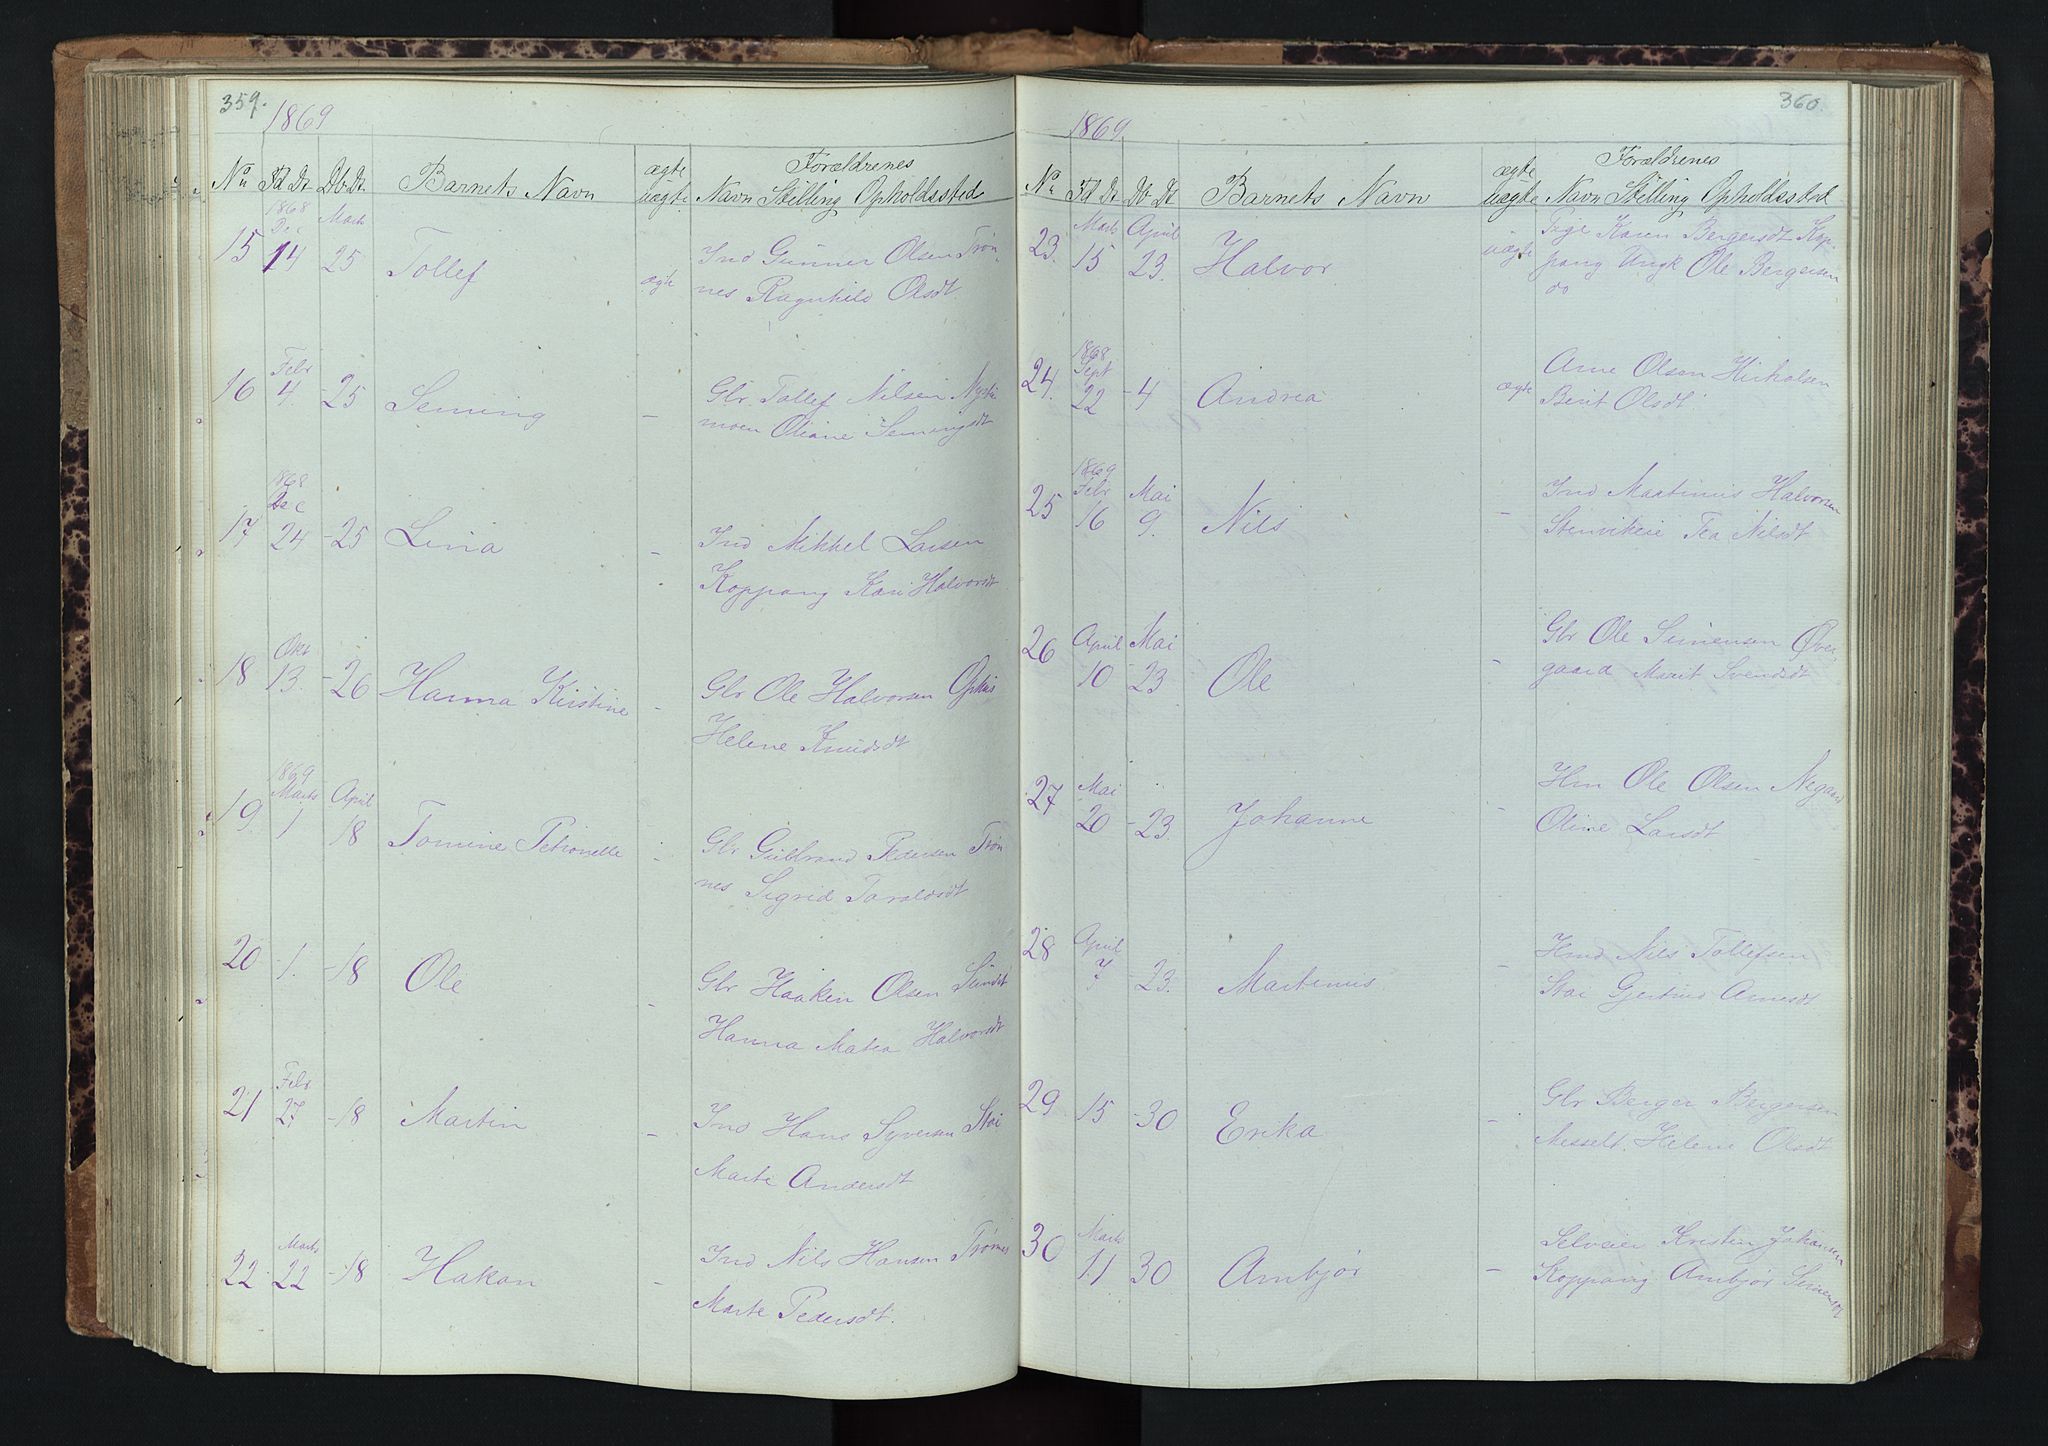 359.
1869
No Fd Dt Db Dt Barnets Navn ægte uægte Forældrenes Navn Stilling Opholdssted
1868 Dec Marts
15 14 25 Tollef ægte Ind Gunner Olsen Trøn-
nes Ragnhild Olsdt
Febr
16 4 -25 Seming - Gbr Tollef Nilsen
moen Oliane Semingsdt
1868 Dec
17 24 -25 Lina - Ind Mikkel Larsen
Koppang Kari Halvorsdt
Okt
18 13. -26 Hanna Kristine - Gbr Ole Halvorsen Ophus
Helene Knudsdt
1869 Marts April
19 1 18 Tomine Petronelle - Gbr Gulbrand Pedersen Trøn
nes Sigrid Taraldsdt
20 -1. -18 Ole - Gbr Haaken Olsen
Hanna Matea Halvorsdt
Febr
21 27. -18 Martin - Ind Hans Syversen Stai
Marte Andersdt
Marts
22 22 -18 Hakon - Ind Nils Hansen Trønnes
Marte Pedersdt.
360.
1869.
No Fd Dt Db Dt Barnets Navn ægte uægte Forældrenes Navn Stilling Opholdssted
Marts April
23. 15 23. Halvor uægte Pige Karen Bergersdt Kop-
pang Ungk Ole Bergersen
do
1868 Sept
24. 22 -4 Andrea ægte Arne Olsen
Berit Olsdt
1869 Febr Mai
25 16 9. Nils - Ind Martinus Halvorsen
Stenvikeie Tea Nilsdt
April Mai
26 10 -23 Ole - Gbr Ole Simensen Øver-
gaard Marit Svendsdt
Mai
27 20 -23. Johanne - Hm Ole Olsen Negaard
Oline Larsdt
April
28 7 23. Martinus - Hmd Nils Tollefsen
Stai Gjertrud Arnesdt
29 15 -30 Erika - Gbr Berger Bergersen
Messelt. Helene Olsdt
Marts
30 11 30 Ambjør - Selveier Kristen Johansen
Koppang Ambjør Simensdt